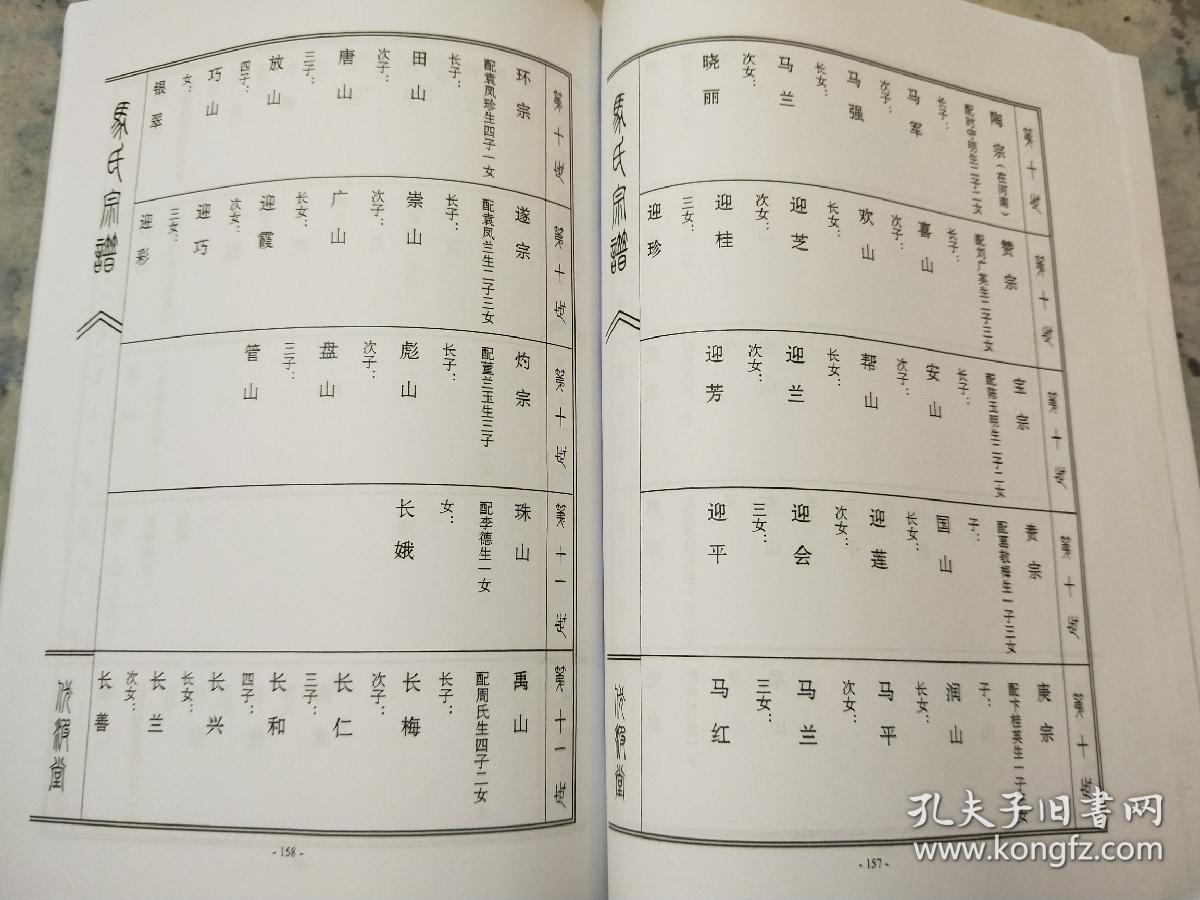 第十世
陶宗(在河南)
配时守明生二子二女
长子:
马军
次子:
马强
长女:
马兰
次女:
晓丽
第十世
赞宗
配刘广英生二子三女
长子:
喜山
次子:
欢山
长女:
迎芝
次女:
迎桂
三女:
迎珍
第十世
宝宗
配陈玉明生二子二女
长子:
安山
次子:
帮山
长女:
迎兰
次女:
迎芳
第十世
贵宗
配葛敬梅生一子三女
子:
国山
长女:
迎莲
次女:
迎会
三女:
迎平
第十世
庚宗
配卞桂英生一子
女
子:
润山
长女:
马平
次女:
马兰
三女:
马红
馬氏宗譜
伏波堂
- 157 -
第十世
环宗
配袁凤珍生四子一女
长子:
田山
次子:
唐山
三子:
放山
四子:
巧山
女:
银翠
第十世
遂宗
配袁凤兰生二子三女
长子:
崇山
次子:
广山
长女:
迎霞
次女:
迎巧
三女:
迎彩
第十世
灼宗
配董兰玉生三子
长子:
彪山
次子:
盘山
三子:
管山
第十一世
珠山
配李德生一女
女:
长娥
第十一世
禹山
配周氏生四子二女
长子:
长梅
次子:
长仁
三子:
长和
四子:
长兴
长女:
长兰
次女:
长善
馬氏宗譜
伏波堂
- 158 -
孔夫子旧书网
www.kongfz.com